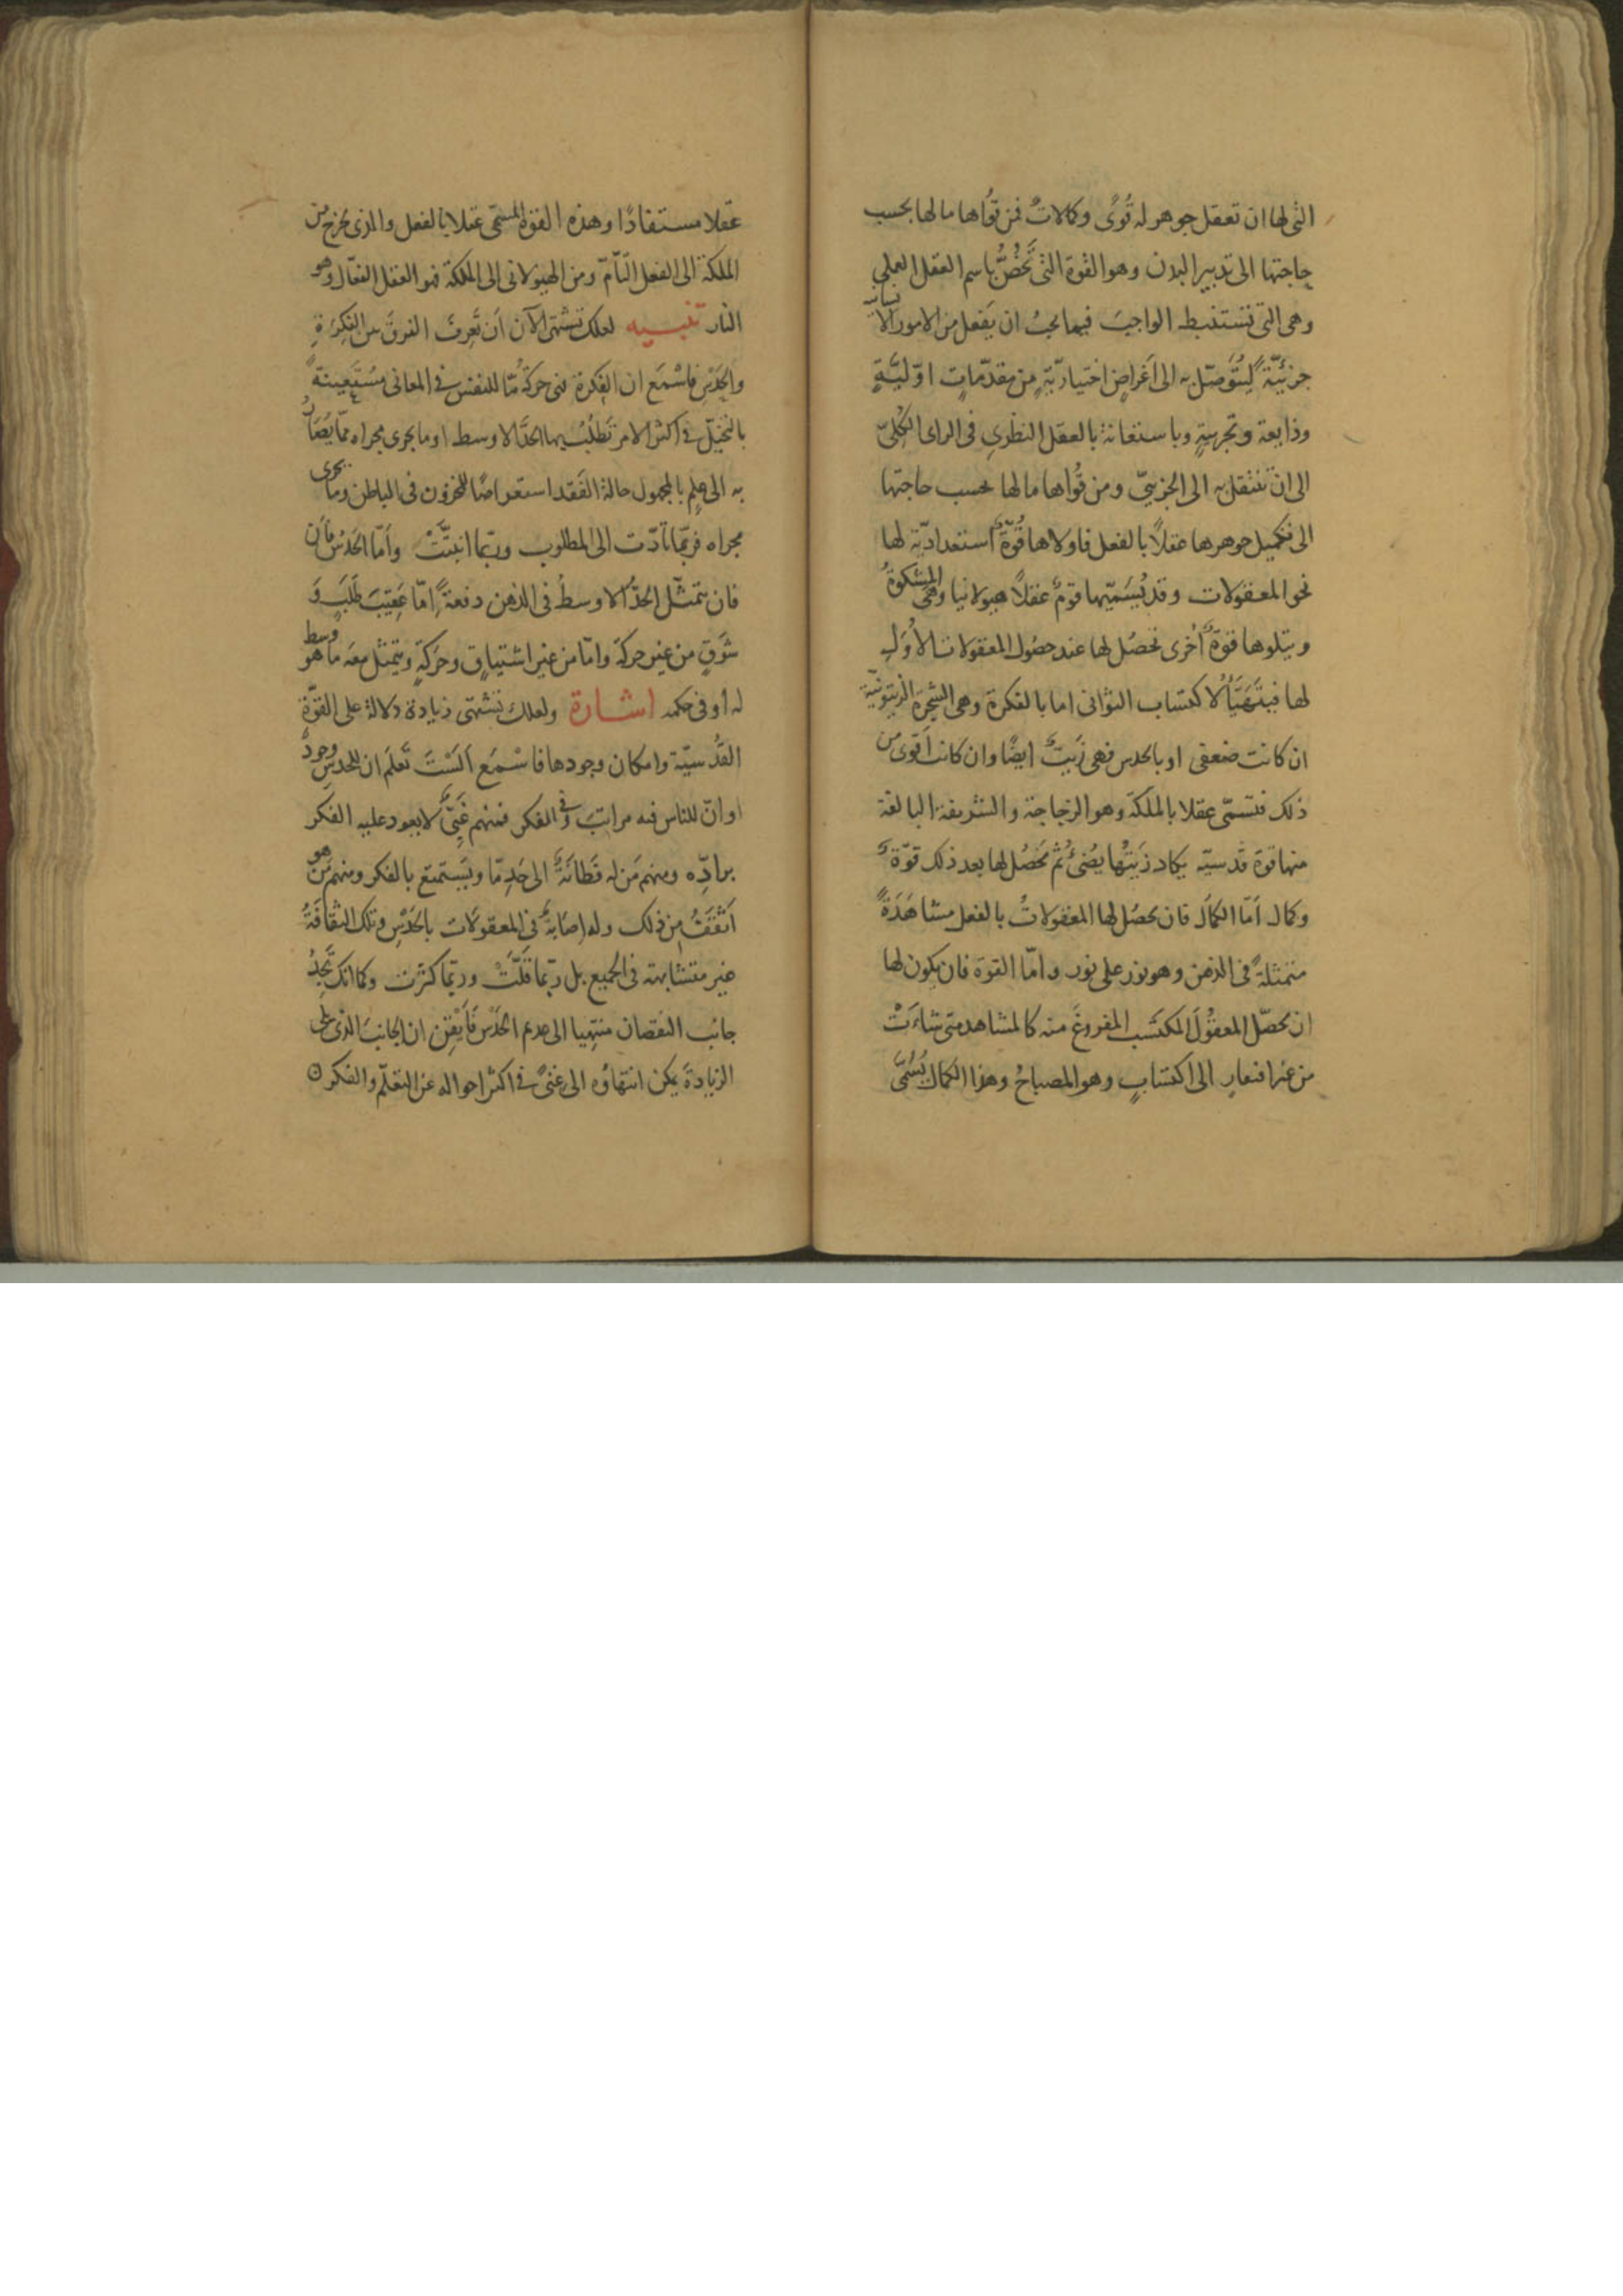 التى لها ان تعقل جوهر له قُوًى وكمالاتٌ فمن قُواها ما لها بحسب
حاجتها الى تدبير البدن وهو القوة التى تَخْصُّ باسم العقل العملى
وهى التى تستنبط الواجبَ فيما يجبُ ان يَفعل من الامور الانسانية
جزئيّةً لِيُتَوصّل به الى اَغراضٍ اختياريّةٍ من مقدّماتٍ اوّليَّةٍ
وذايعة وتجربيةٍ وباستعانة بالعقل النظرى فى الراى الكلىّ
الى ان ننتقل به الى الجزيىّ ومن قُواها ما لها بحسب حاجتها
الى تكميل جوهرها عقلاً بالفعل فاولاها قُوّةٌ استعداديّة لها
نحو المعقولات وقد يُسَمّيها قومٌ عقلاً هيولانيا وهى المشكوةُ
ويتلوها قوةٌ اُخرى تحصُل لها عند حصُول المعقولات الاُوَلِ
لها فيتَهَيّأُ لاكتساب الثوانى اما بالفكرة وهى الشجرة الزيتونيّة
ان كانت ضعفى او بالحدس فهى زَيتٌ ايضًا وان كانت اَقوى من
ذلك فتسمّى عقلا بالملكة وهو الزجاجة والشريفة البالغة
منها قوة قدسيّة يكاد زَيتُها يُضئُ ثم تحَصُل لها بعد ذلك قوّةٌ
وكمال اَمّا الكمَال فان يحصُل لها المعقولاتُ بالفعل مشاهَدَةً
متمثلةً فى الذهن وهو نور على نور واَمّا القوة فان يكون لها
ان يحصّل المعقُولَ المكتَسب المفروغَ منه كالمشاهد متى شاءَتْ
من غير افتقارٍ الى اكتسابٍ وهو المصباحُ وهذا الكمال يُسَمّى
عقلا مستفادًا وهذه القوة المسمّى عقلا بالفعل والذى يُخرج من
الملكة الى الفعل التّامّ ومن الهيولانى الى الملكة فهو العقل الفعّال وهو
النار تنبيه لعلك تشتهى الآن اَن تَعرِفَ الفرقَ بين الفكرَةِ
والحَدْسِ فاسْمَع ان الفكرة هى حركةٌ مّا للنفس فى المعانى مستَعِينةً
بالتخيّل فى اكثر الامر تَطلُب بها الحدَّ الاوسط او ما يجرى مجراه ممّا يُصَارُ
به الى عِلمٍ بالمجهول حالة الفَقد استعراضًا للمخزون فى الباطن وما يجرى
مجراه فربّما تأدّت الى المطلوب وربّما انبتَّتْ واَمّا الحَدْسُ فاَن
فان يتمثّل الحدّ الاوسطُ فى الذهن دفعةً اِمّا عَقِيبَ طَلَبٍ وَ
شَوقٍ من غير حركة وامّا من غير اشتياقٍ وحَركةٍ ويتمثل معَه ما هو وسط
له او فى حكمه اشارة ولعلك تشتهى زيادة دلالة على القوّة
القُدسيّة وامكان وجودها فاسْمَع اَلَسْتَ تَعلَم ان للحدس وجودًا
او انّ للناس فيه مراتبَ وفى الفكر فمنهم غَبِىٌّ لا يعود عليه الفكر
برادِّه ومنهم مَن له فَطَانَةٌ الى حَدٍ مّا ويَستمتِع بالفكر ومنهم مَن هو
اَثْقَفُ من ذلك وله اِصَابةٌ فى المعقولات بالحَدْسِ وتلك الثقافَةُ
غير متشابهة فى الجميع بل ربّما قَلّتْ وربّما كثرت وكما انك تَجِدُ
جانب النقصان منتهيا الى عدم الحَدْس فاَيقِن ان الجانبَ الذى يلى
الزيادةَ يمكن انتهاؤه الى غنىً فى اكثر احواله عن التعلّم والفكر